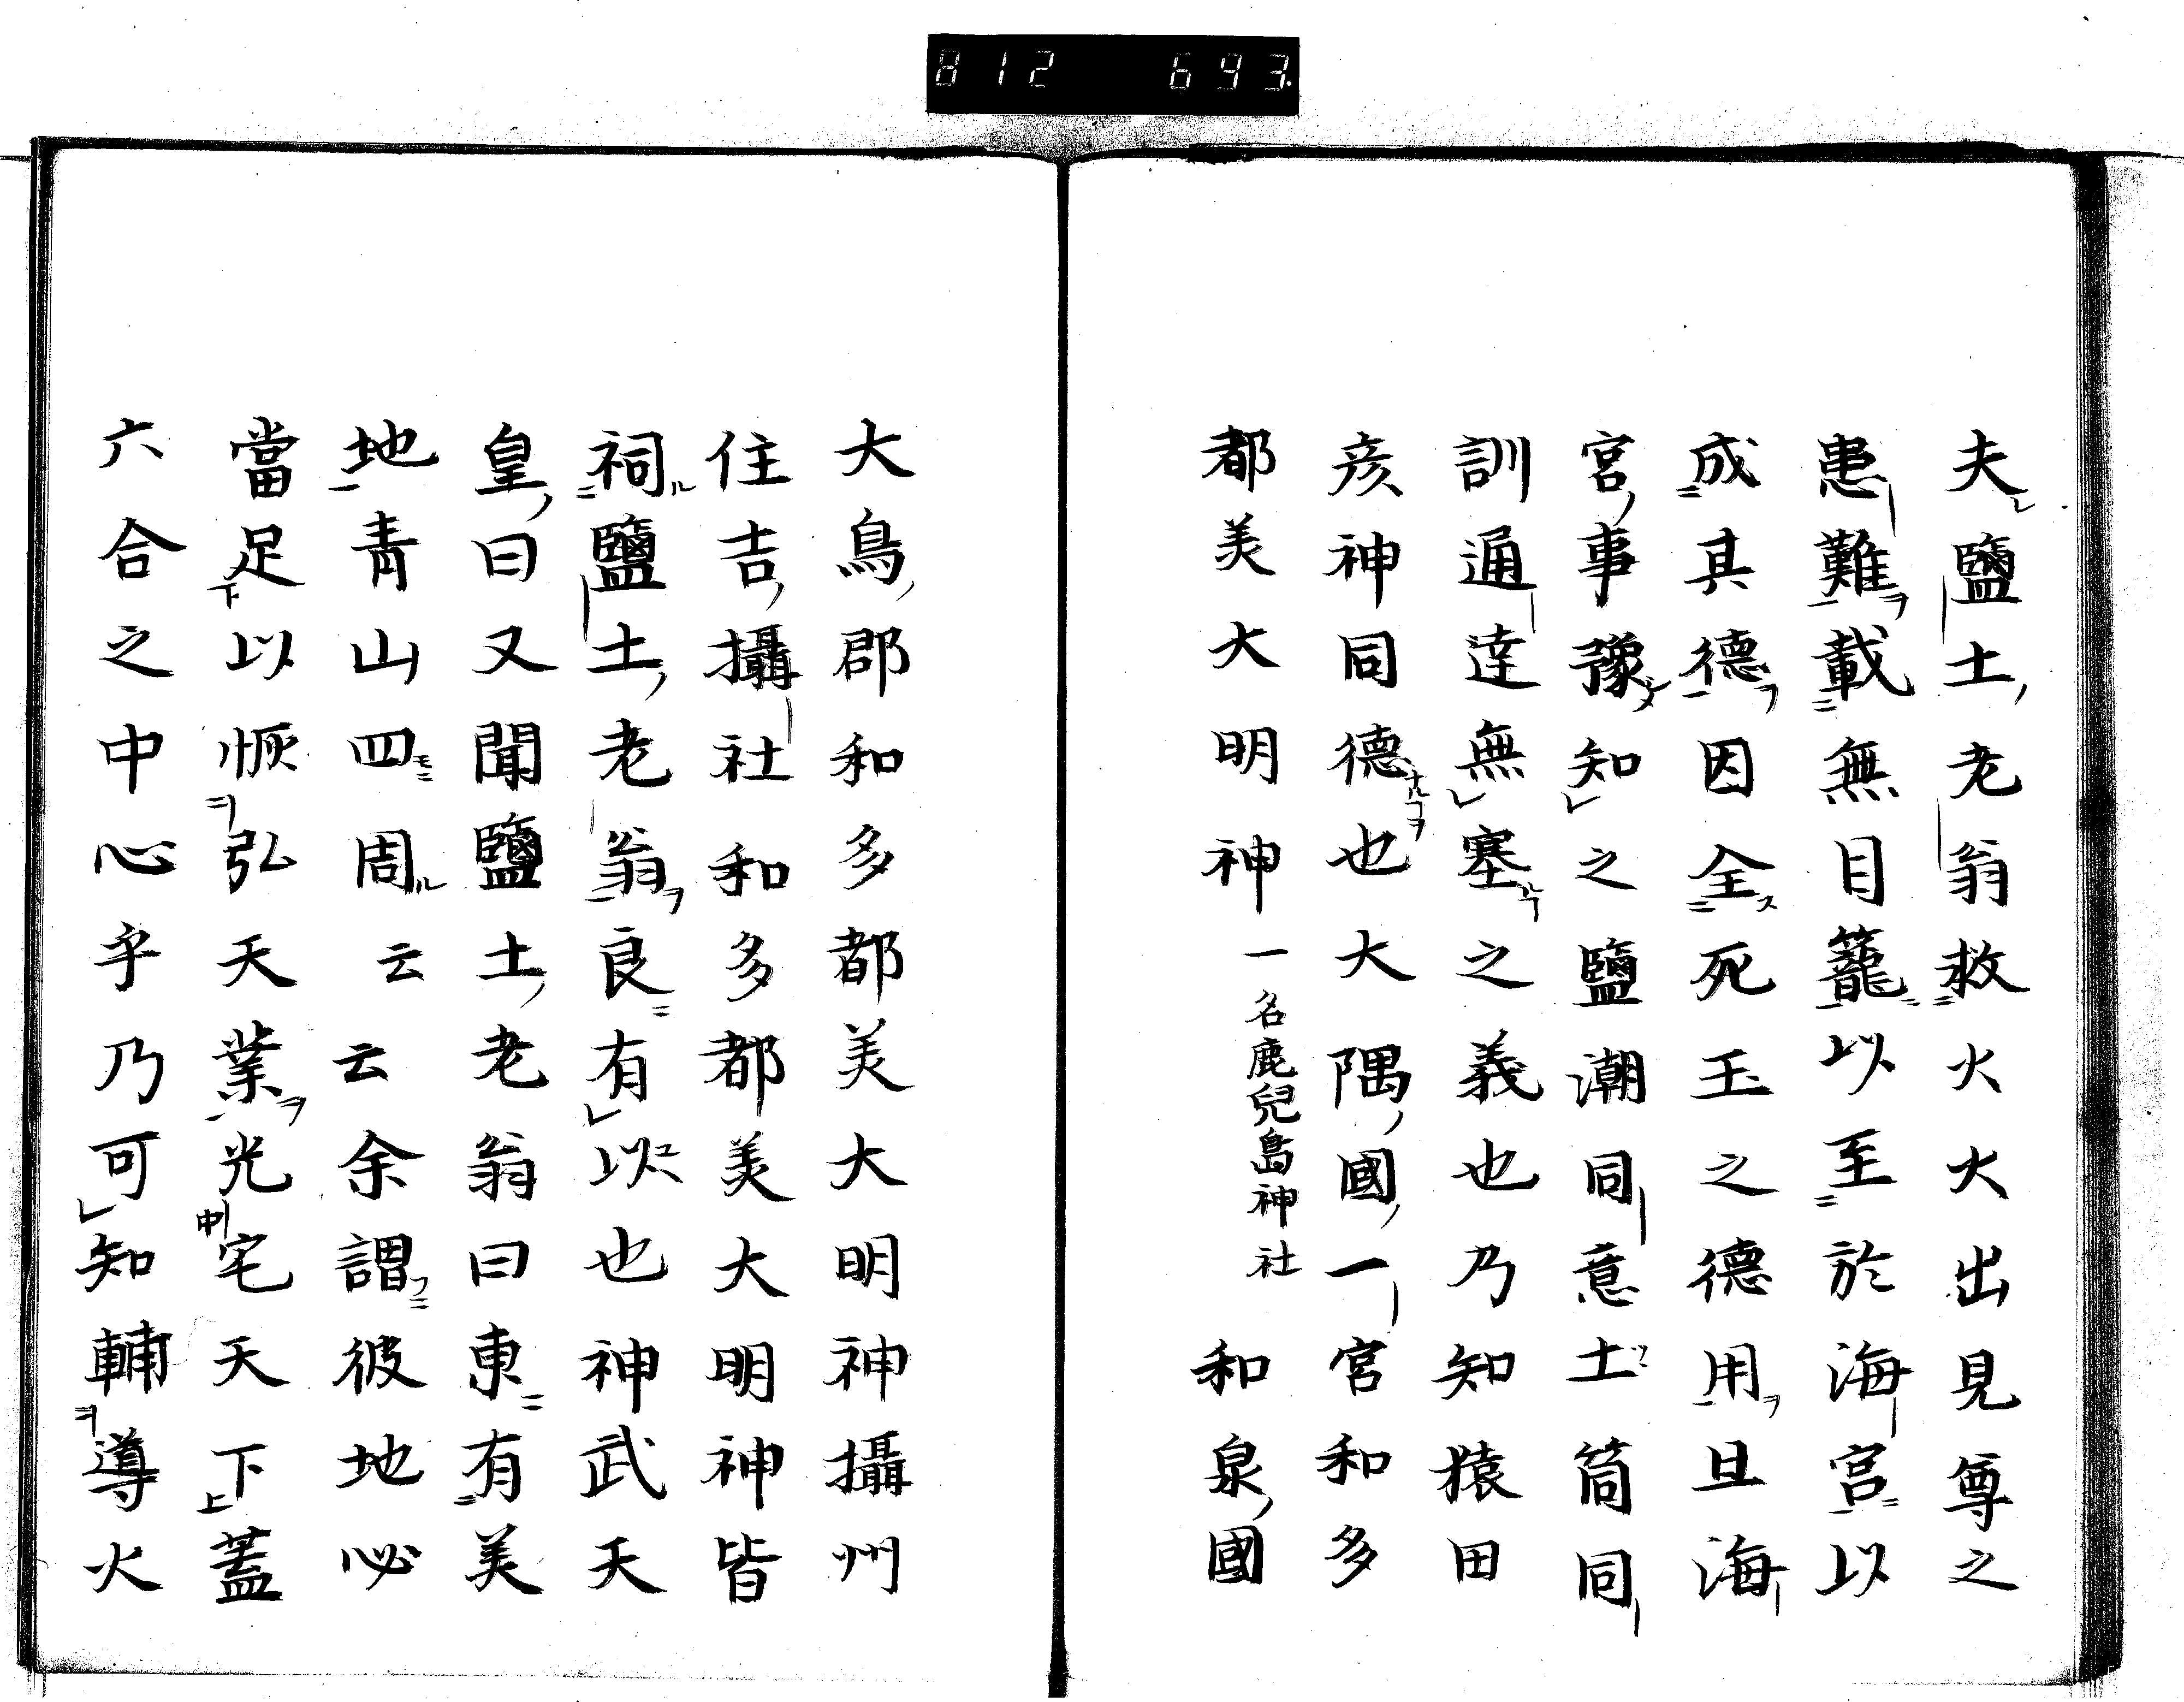 812 693.
夫鹽土老翁救火火出見尊之
患難載無目籠以至於海宮以
成其德因全死玉之德用且海
宮事豫知之鹽潮同意土筒同
訓通達無塞之義也乃知猿田
彦神同德也大隅國一宮和多
都美大明神一名鹿兒島神社和泉國
大鳥郡和多都美大明神攝州
住吉攝社和多都美大明神皆
祠鹽土老翁良有以也神武天
皇曰又聞鹽土老翁曰東有美
地青山四周云云余謂彼地必
當足以恢弘天業光宅天下蓋
六合之中心乎乃可知輔導火